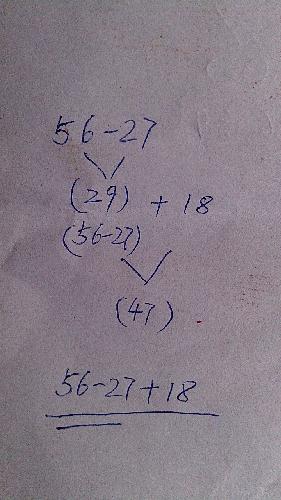 56-27
(29) + 18
(56-27)
(47)
56-27+18